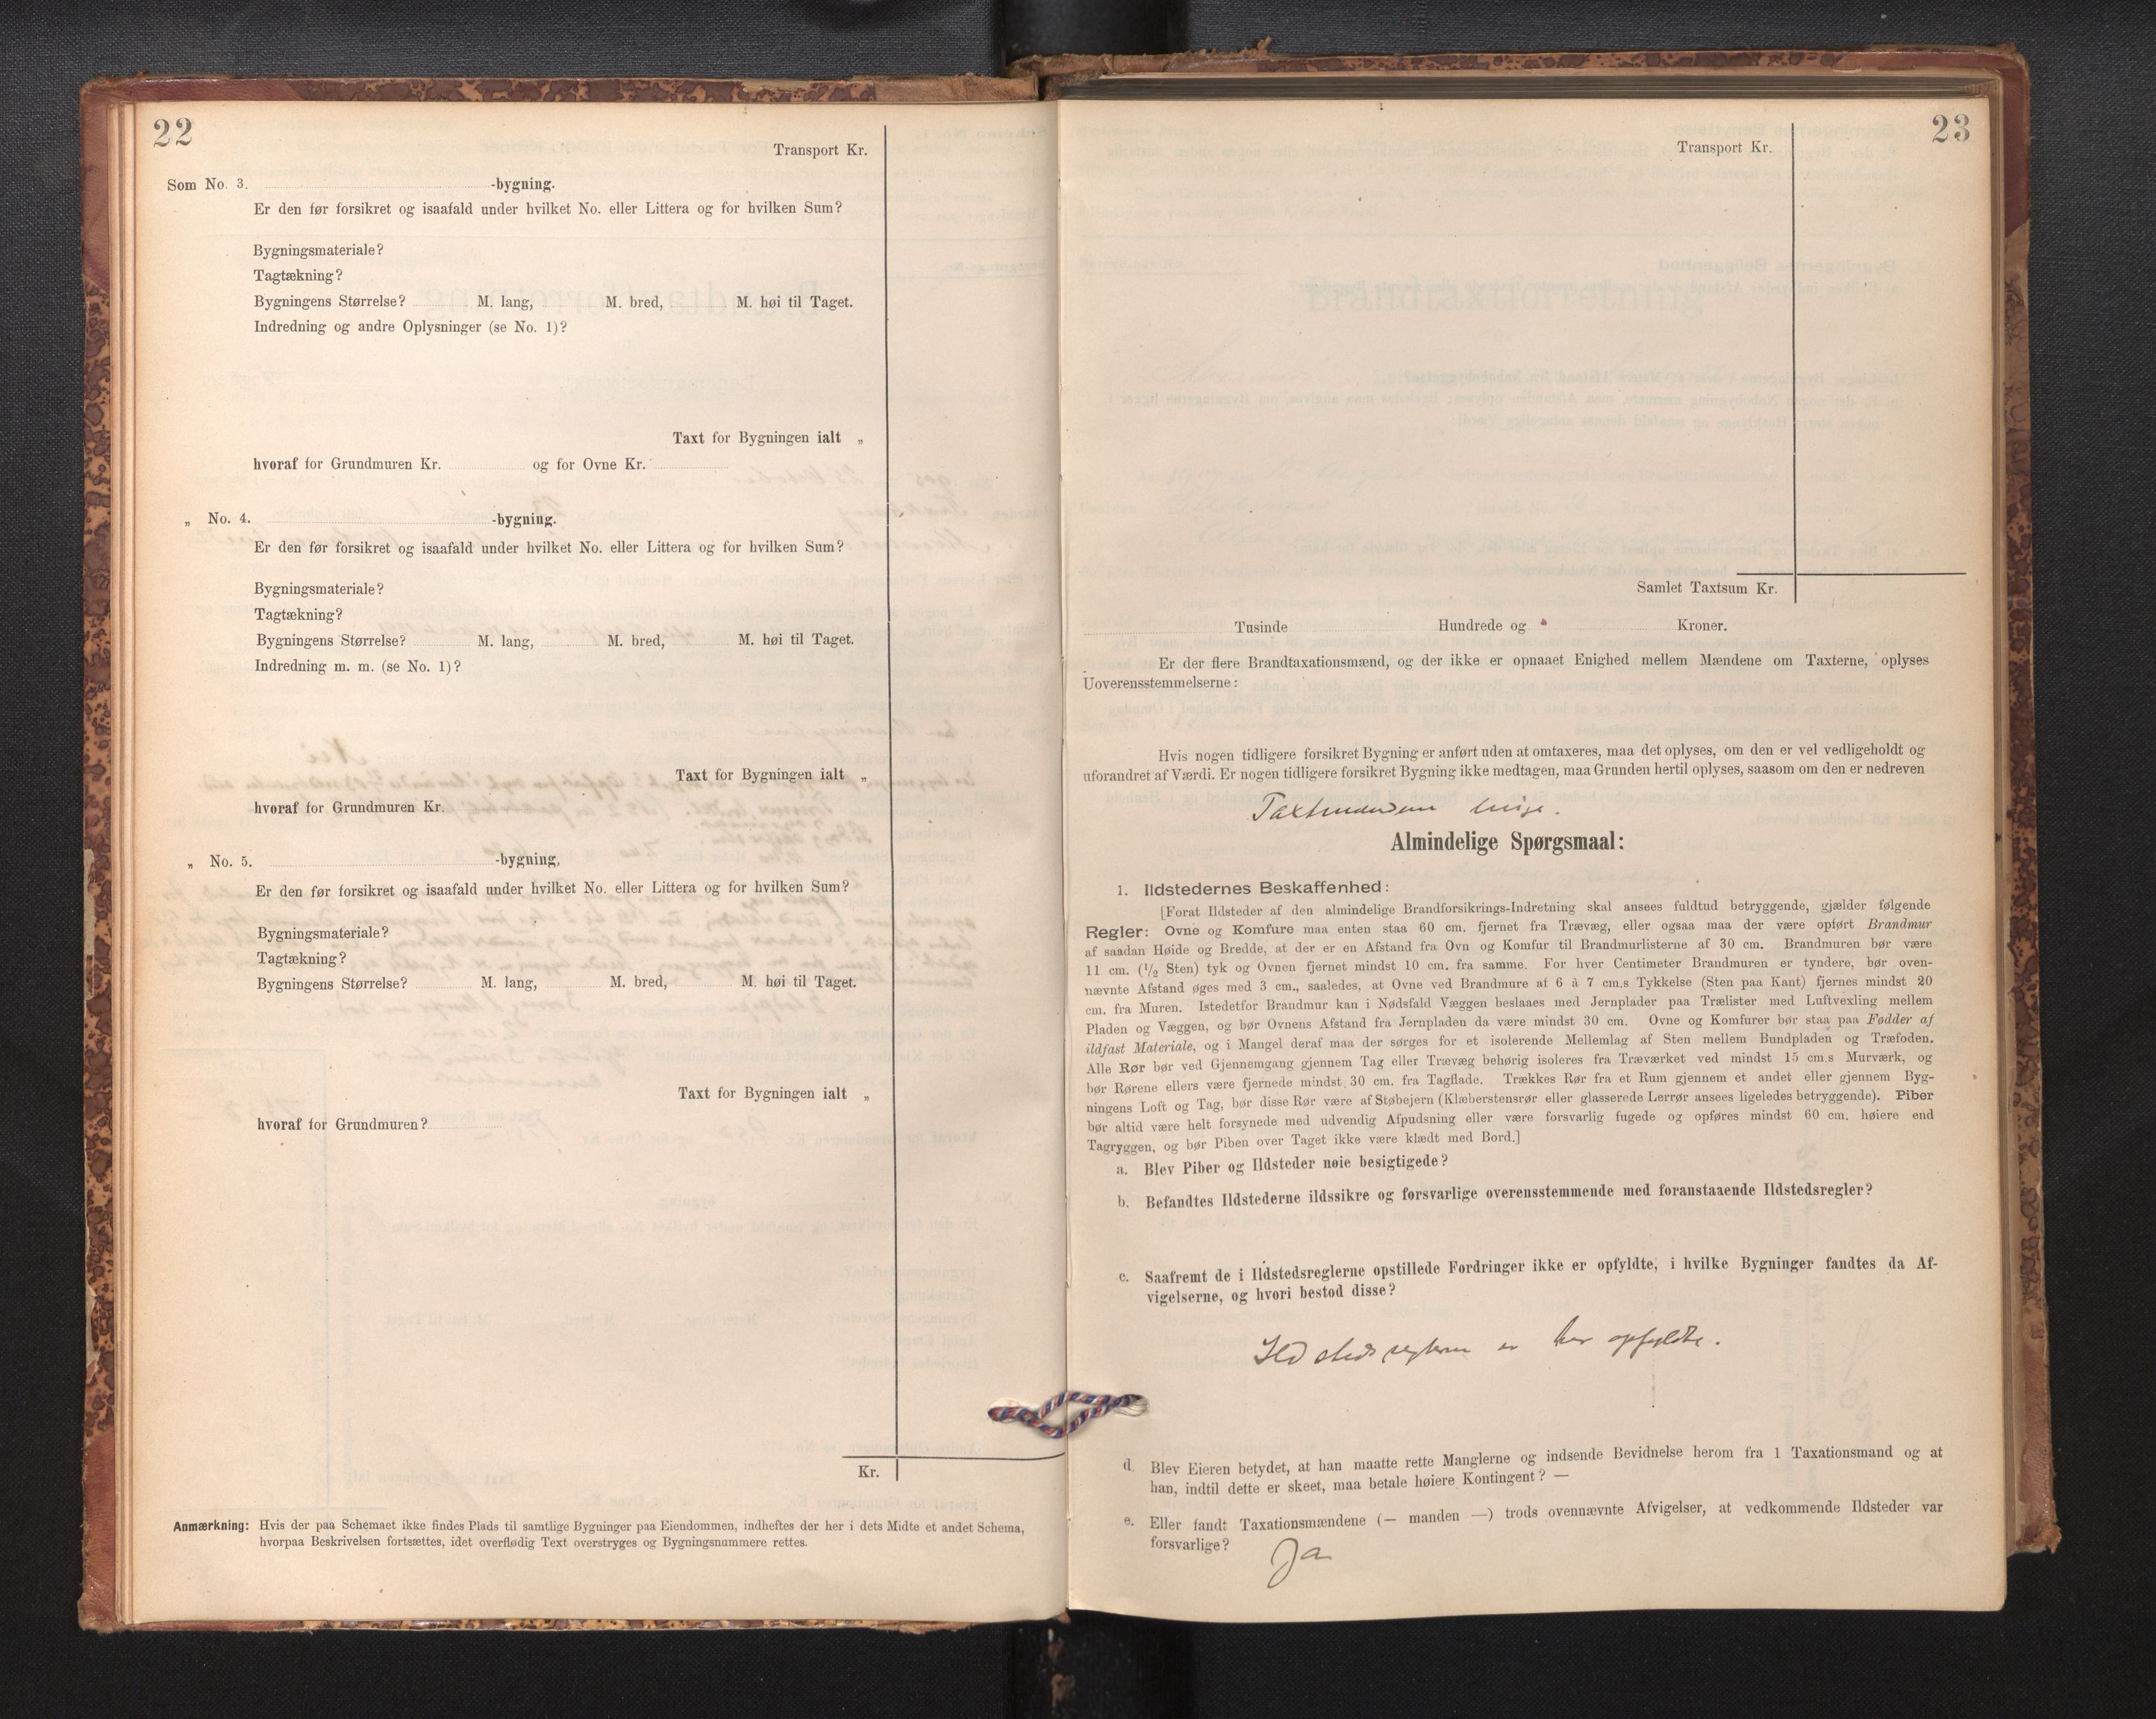 22
Transport Kr.
Som No. 3. -bygning.
Er den før forsikret og isaafald under hvilket No. eller Littera og for hvilken Sum?
Bygningsmateriale?
Tagtækning?
Bygningens Størrelse? M. lang, M. bred, M. høi til Taget.
Indredning og andre Oplysninger (se No. 1)?
Taxt for Bygningen ialt „
hvoraf for Grundmuren Kr. og for Ovne Kr.
„ No. 4. -bygning.
Er den før forsikret og isaafald under hvilket No. eller Littera og for hvilken Sum?
Bygningsmateriale?
Tagtækning?
Bygningens Størrelse? M. lang, M. bred, M. høi til Taget.
Indredning m. m. (se No. 1)?
Taxt for Bygningen ialt „
hvoraf for Grundmuren Kr.
„ No. 5. -bygning,
Er den før forsikret og isaafald under hvilket No. eller Littera og for hvilken Sum?
Bygningsmateriale?
Tagtækning?
Bygningens Størrelse? M. lang, M. bred, M. høi til Taget.
Taxt for Bygningen ialt „
hvoraf for Grundmuren?
Kr.
Anmærkning: Hvis der paa Schemaet ikke findes Plads til samtlige Bygninger paa Eiendommen, indheftes der her i dets Midte et andet Schema,
hvorpaa Beskrivelsen fortsættes, idet overflødig Text overstryges og Bygningsnummere rettes.
23
Transport Kr.
Samlet Taxtsum Kr.
Tusinde Hundrede og Kroner.
Er der flere Brandtaxationsmænd, og der ikke er opnaaet Enighed mellem Mændene om Taxterne, oplyses
Uoverensstemmelserne:
Hvis nogen tidligere forsikret Bygning er anført uden at omtaxeres, maa det oplyses, om den er vel vedligeholdt og
uforandret af Værdi. Er nogen tidligere forsikret Bygning ikke medtagen, maa Grunden hertil oplyses, saasom om den er nedreven
Taxtmændene enige.
Almindelige Spørgsmaal:
1. Ildstedernes Beskaffenhed:
[Forat Ildsteder af den almindelige Brandforsikrings-Indretning skal ansees fuldtud betryggende, gjælder følgende
Regler: Ovne og Komfure maa enten staa 60 cm. fjernet fra Trævæg, eller ogsaa maa der være opført Brandmur
af saadan Høide og Bredde, at der er en Afstand fra Ovn og Komfur til Brandmurlisterne af 30 cm. Brandmuren bør være
11 cm. (1/2 Sten) tyk og Ovnen fjernet mindst 10 cm. fra samme. For hver Centimeter Brandmuren er tyndere, bør oven-
nævnte Afstand øges med 3 cm., saaledes, at Ovne ved Brandmure af 6 à 7 cm.s Tykkelse (Sten paa Kant) fjernes mindst 20
cm. fra Muren. Istedetfor Brandmur kan i Nødsfald Væggen beslaaes med Jernplader paa Trælister med Luftvexling mellem
Pladen og Væggen, og bør Ovnens Afstand fra Jernpladen da være mindst 30 cm. Ovne og Komfurer bør staa paa Fødder af
ildfast Materiale, og i Mangel deraf maa der sørges for et isolerende Mellemlag af Sten mellem Bundpladen og Træfoden.
Alle Rør bør ved Gjennemgang gjennem Tag eller Trævæg behørig isoleres fra Træværket ved mindst 15 cm.s Murværk, og
bør Rørene ellers være fjernede mindst 30 cm. fra Tagflade. Trækkes Rør fra et Rum gjennem et andet eller gjennem Byg-
ningens Loft og Tag, bør disse Rør være af Støbejern (Klæberstensrør eller glasserede Lerrør ansees ligeledes betryggende). Piber
bør altid være helt forsynede med udvendig Afpudsning eller være forsvarlig fugede og opføres mindst 60 cm. høiere end
Tagryggen, og bør Piben over Taget ikke være klædt med Bord.]
a. Blev Piber og Ildsteder nøie besigtigede?
b. Befandtes Ildstederne ildssikre og forsvarlige overensstemmende med foranstaaende Ildstedsregler?
c. Saafremt de i Ildstedsreglerne opstillede Fordringer ikke er opfyldte, i hvilke Bygninger fandtes da Af-
vigelserne, og hvori bestod disse?
Ildstedsreglerne er her opfyldte.
d. Blev Eieren betydet, at han maatte rette Manglerne og indsende Bevidnelse herom fra 1 Taxationsmand og at
han, indtil dette er skeet, maa betale høiere Kontingent? —
e. Eller fandt Taxationsmændene (— manden —) trods ovennævnte Afvigelser, at vedkommende Ildsteder var
forsvarlige?
Ja